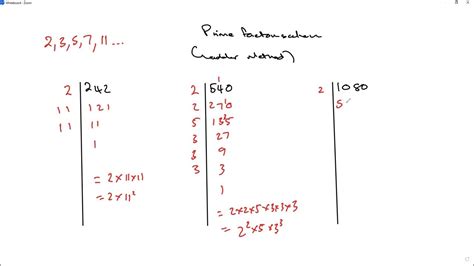 2,3,5,7,11...
Prime factorisation
(ladder method)
2 | 242
11 | 121
11 | 11
1
= 2×11×11
= 2×11²
2 | 540
2 | 270
5 | 135
3 | 27
3 | 9
3 | 3
1
= 2×2×5×3×3×3
= 2²×5×3³
2 | 1080
5